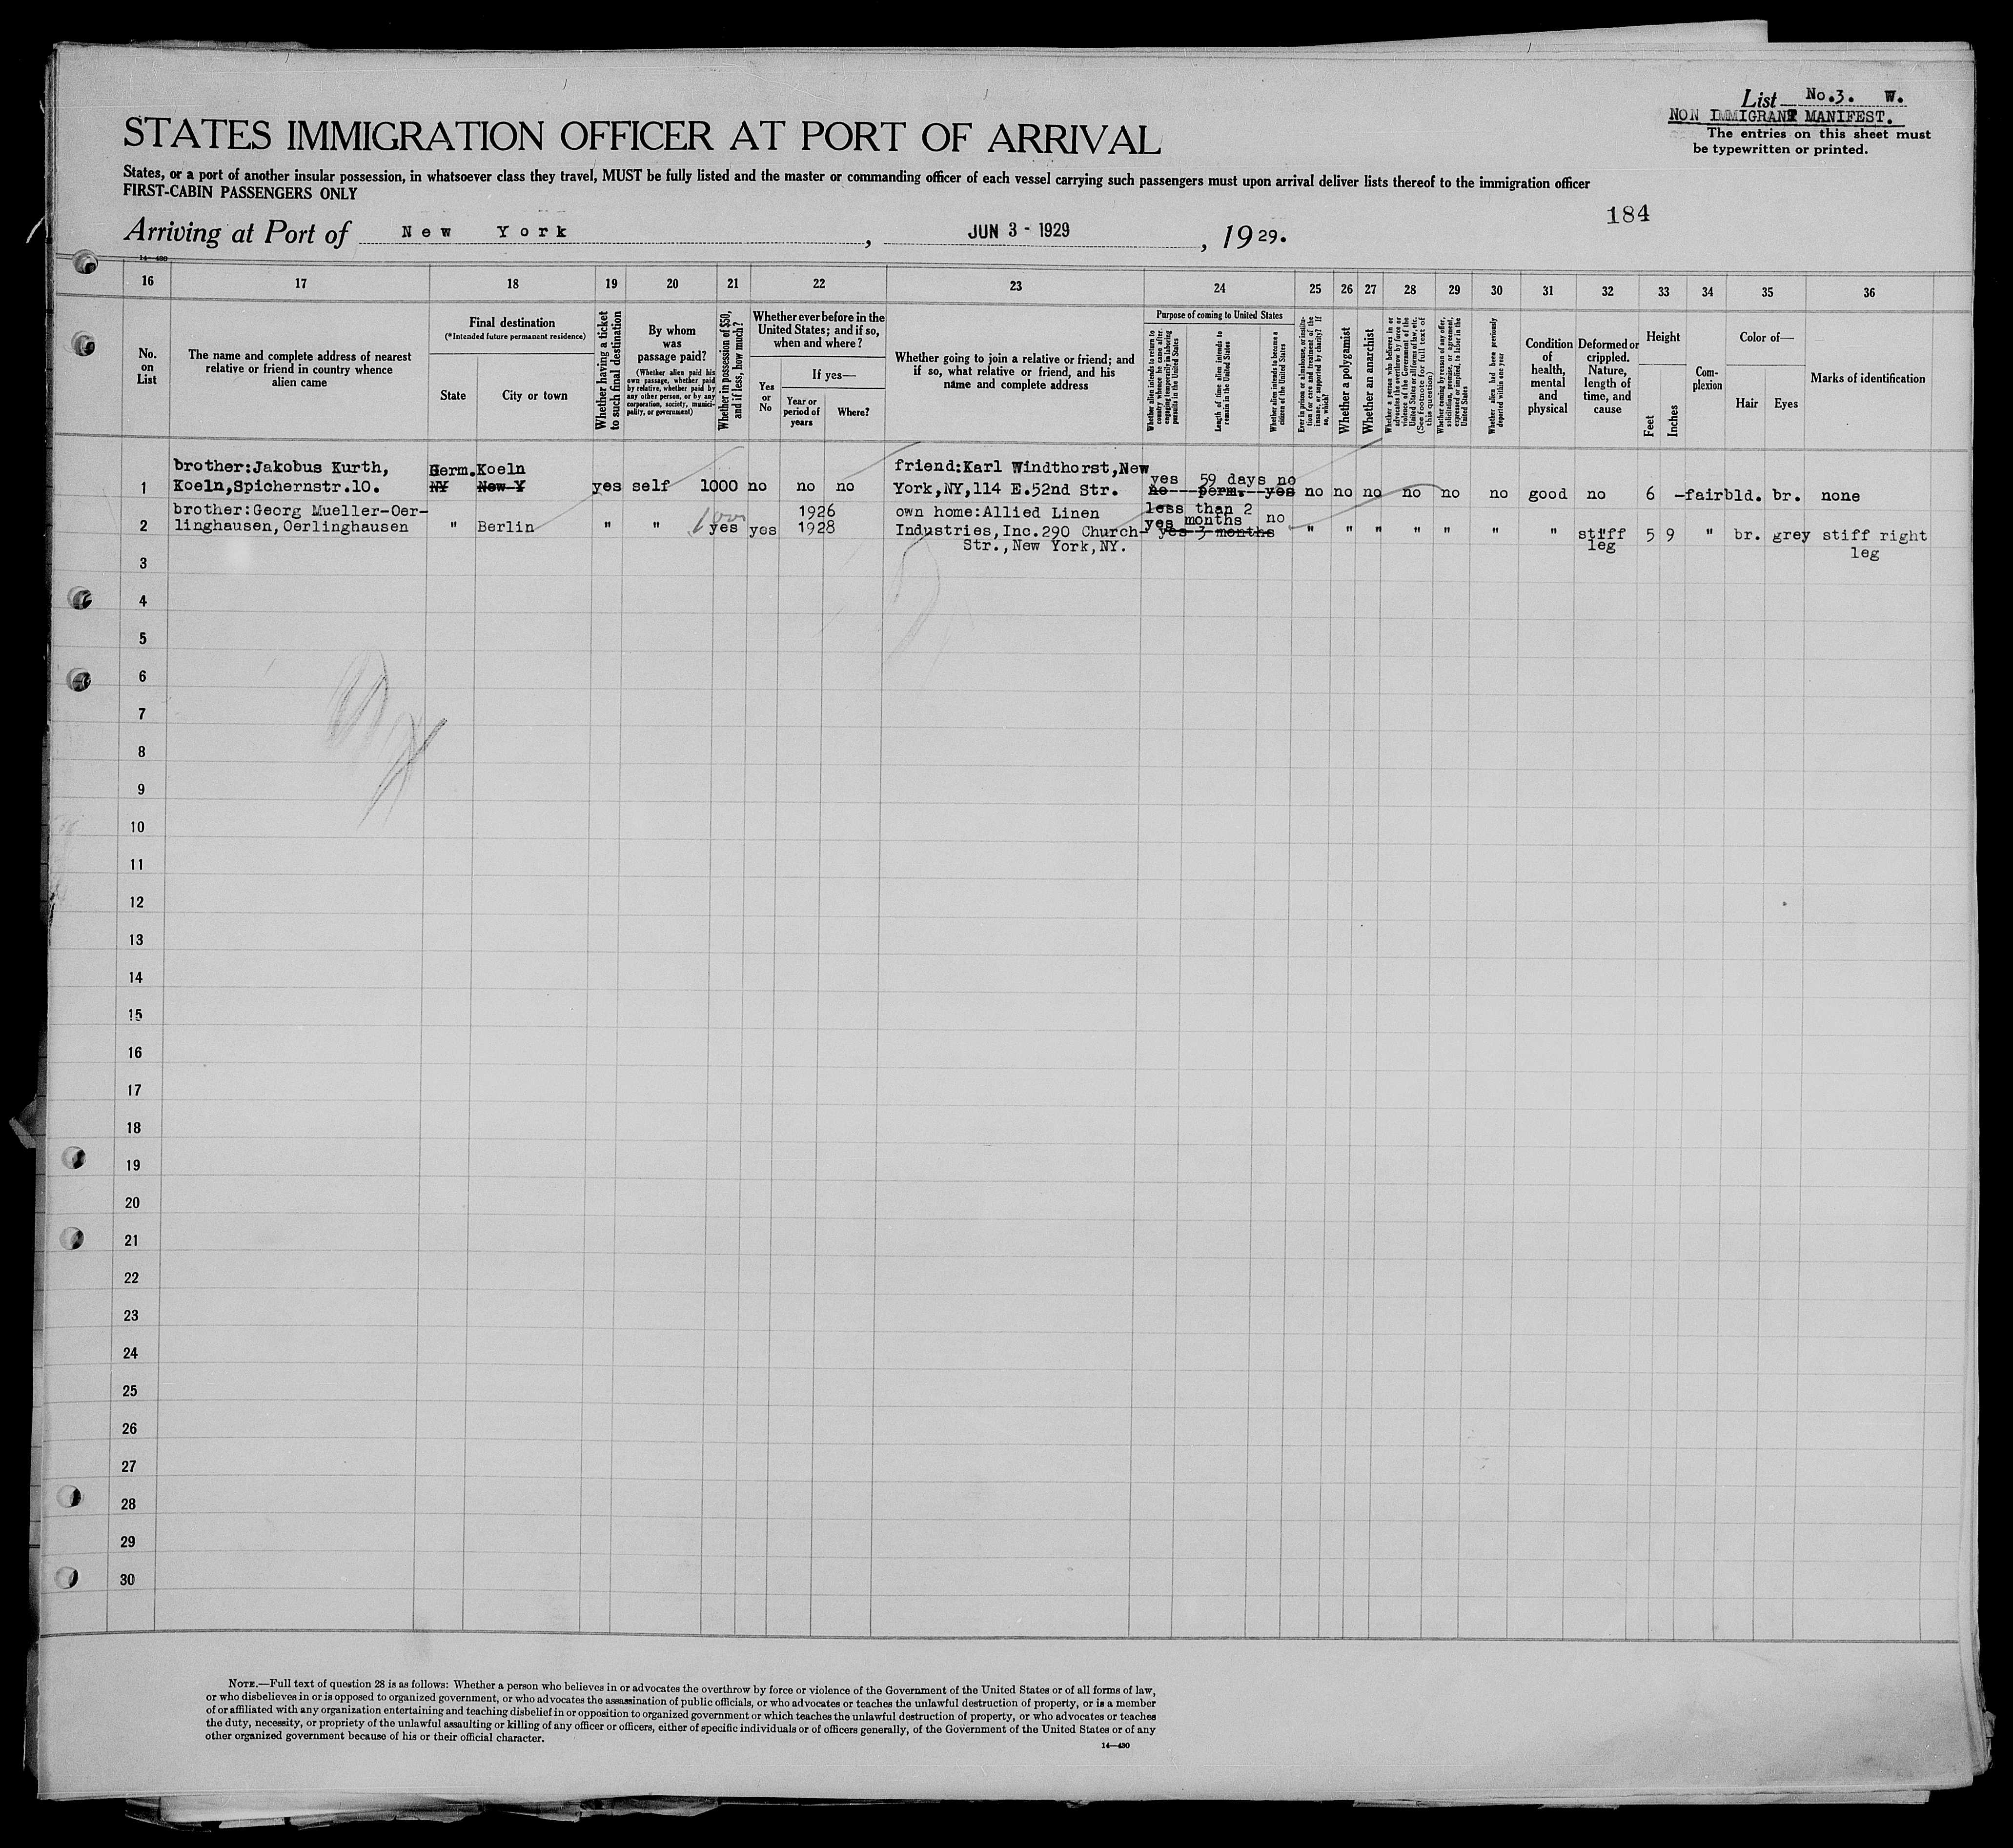 List No.3. W.
NON IMMIGRANT MANIFEST.
The entries on this sheet must
be typewritten or printed.
STATES IMMIGRATION OFFICER AT PORT OF ARRIVAL
States, or a port of another insular possession, in whatsoever class they travel, MUST be fully listed and the master or commanding officer of each vessel carrying such passengers must upon arrival deliver lists thereof to the immigration officer
FIRST-CABIN PASSENGERS ONLY
184
Arriving at Port of New York, JUN 3 - 1929, 1929.
14—430
16 17 18 19 20 21 22 23 24 25 26 27 28 29 30 31 32 33 34 35 36
No. on List
The name and complete address of nearest relative or friend in country whence alien came
Final destination
(*Intended future permanent residence)
State
City or town
Whether having a ticket to such final destination
By whom was passage paid?
(Whether alien paid his own passage, whether paid by relative, whether paid by any other person, or by any corporation, society, municipality, or government)
Whether in possession of $50, and if less, how much?
Whether ever before in the United States; and if so, when and where?
Yes or No
If yes—
Year or period of years
Where?
Whether going to join a relative or friend; and if so, what relative or friend, and his name and complete address
Purpose of coming to United States
Whether alien intends to return to country whence he came after engaging temporarily in laboring pursuits in the United States
Length of time alien intends to remain in the United States
Whether alien intends to become a citizen of the United States
Ever in prison or almshouse, or institution for care and treatment of the insane, or supported by charity? If so, which?
Whether a polygamist
Whether an anarchist
Whether a person who believes in or advocates the overthrow by force or violence of the Government of the United States or all forms of law, etc. (See footnote for full text of this question)
Whether coming by reason of any offer, solicitation, promise, or agreement, expressed or implied, to labor in the United States
Whether alien had been previously deported within one year
Condition of health, mental and physical
Deformed or crippled. Nature, length of time, and cause
Height
Feet
Inches
Complexion
Color of—
Hair
Eyes
Marks of identification
brother:Jakobus Kurth, Germ. Koeln friend:Karl Windthorst,New yes 59 days no
1 Koeln,Spichernstr.10. NY New Y yes self 1000 no no no York,NY,114 E.52nd Str. no perm. yes no no no no no no good no 6 - fair bld. br. none
brother:Georg Mueller-Oer- 1000 1926 own home:Allied Linen less than 2
2 linghausen,Oerlinghausen " Berlin " " yes yes 1928 Industries,Inc.290 Church- yes months no yes 3 months " " " " " " " stiff 5 9 " br. grey stiff right
3 Str.,New York,NY. leg leg
4
5
6
7
8
9
10
11
12
13
14
15
16
17
18
19
20
21
22
23
24
25
26
27
28
29
30
NOTE.—Full text of question 28 is as follows: Whether a person who believes in or advocates the overthrow by force or violence of the Government of the United States or of all forms of law,
or who disbelieves in or is opposed to organized government, or who advocates the assassination of public officials, or who advocates or teaches the unlawful destruction of property, or is a member
of or affiliated with any organization entertaining and teaching disbelief in or opposition to organized government or which teaches the unlawful destruction of property, or who advocates or teaches
the duty, necessity, or propriety of the unlawful assaulting or killing of any officer or officers, either of specific individuals or of officers generally, of the Government of the United States or of any
other organized government because of his or their official character.
14—430